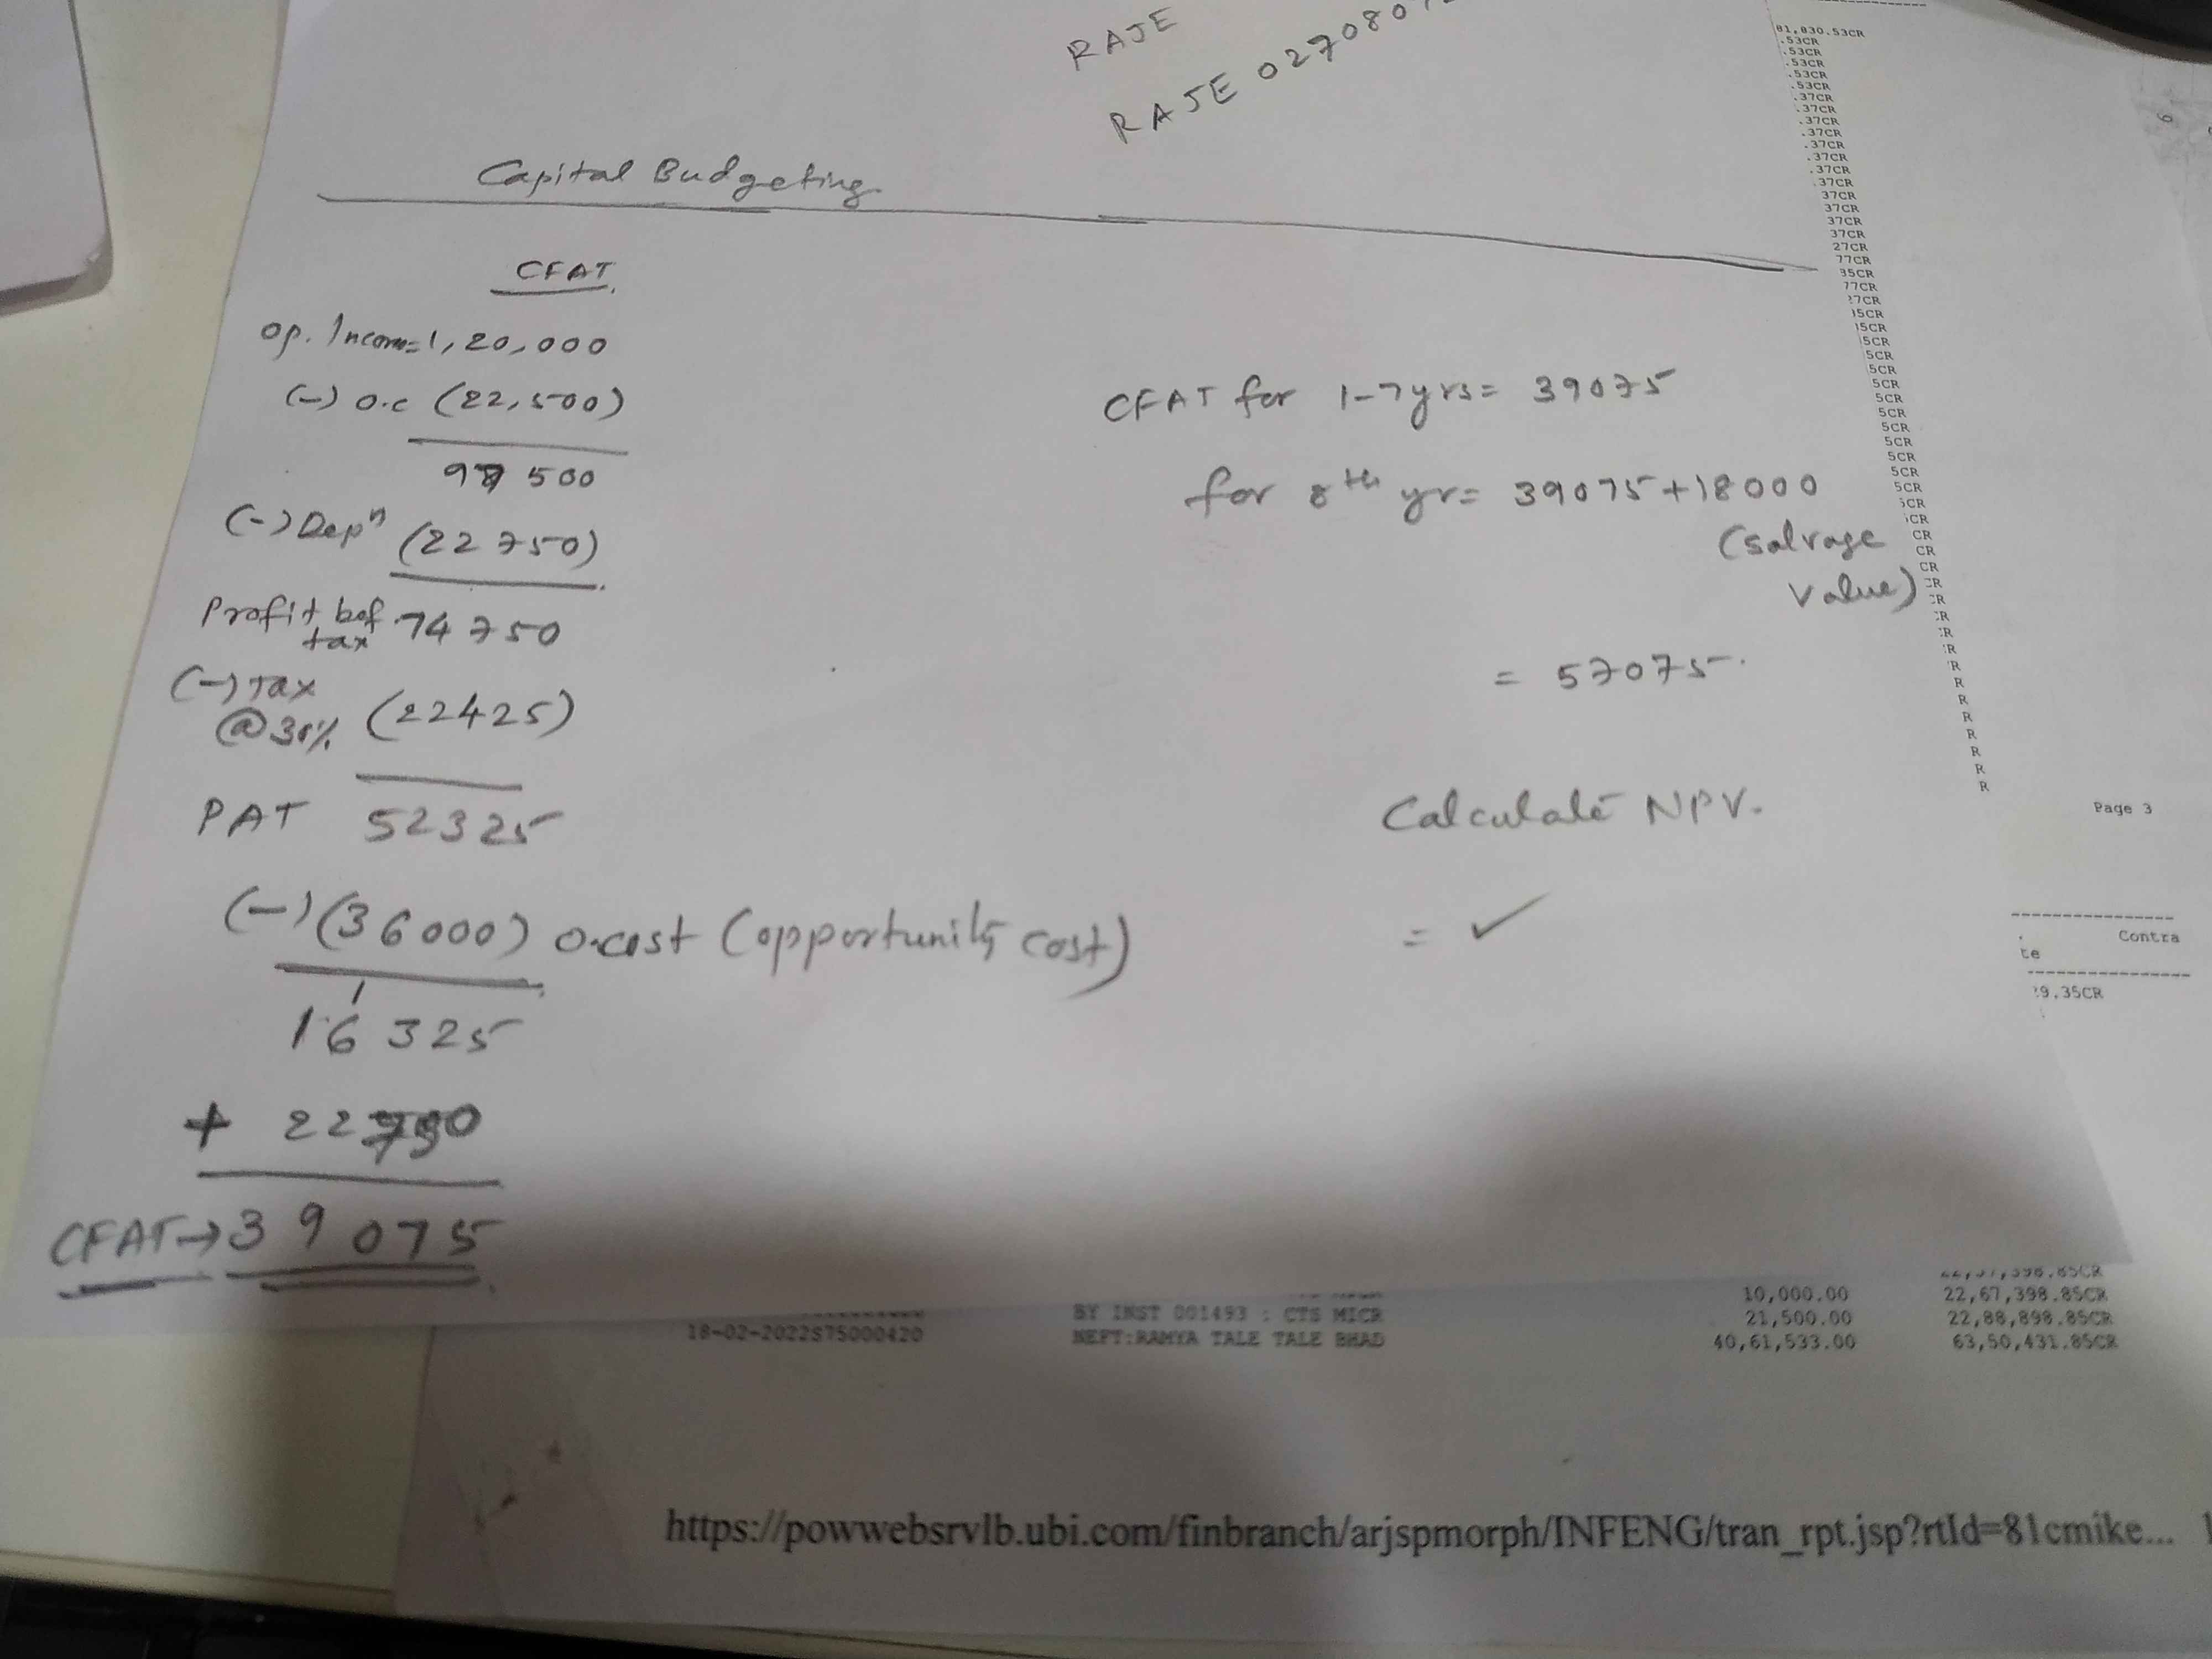 RAJE
RAJE 027080
Capital Budgeting
CFAT
op. Incom= 1,20,000
(-) o.c (22,500)
500
(-) Depⁿ (22750)
Profit bef tax 74750
(-) Tax @30% (22425)
PAT 52325
(-) (36000) o.cost (opportunity cost)
16325
+ 22750
CFAT→39075
CFAT for 1-7yrs= 39075
for 8th yr= 39075+18000
(salvage
value)
= 57075.
Calculate NPV.
= ✓
81,830.53CR
.53CR
.53CR
.53CR
.53CR
.37CR
.37CR
.37CR
.37CR
.37CR
.37CR
.37CR
.37CR
37CR
37CR
37CR
37CR
27CR
77CR
35CR
77CR
27CR
15CR
15CR
5CR
5CR
5CR
5CR
5CR
5CR
5CR
5CR
5CR
5CR
5CR
CR
CR
CR
CR
CR
R
R
R
R
R
R
R
R
R
R
R
R
Page 3
Contra
te
9.35CR
10,000.00 22,67,398.85CR
BY INST 001493 : CTS MICR 21,500.00 22,88,898.85CR
18-02-2022S75000420 NEFT:RAMYA TALE TALE BHAD 40,61,533.00 63,50,431.85CR
https://powwebsrvlb.ubi.com/finbranch/arjspmorph/INFENG/tran_rpt.jsp?rtId=81cmike... 1